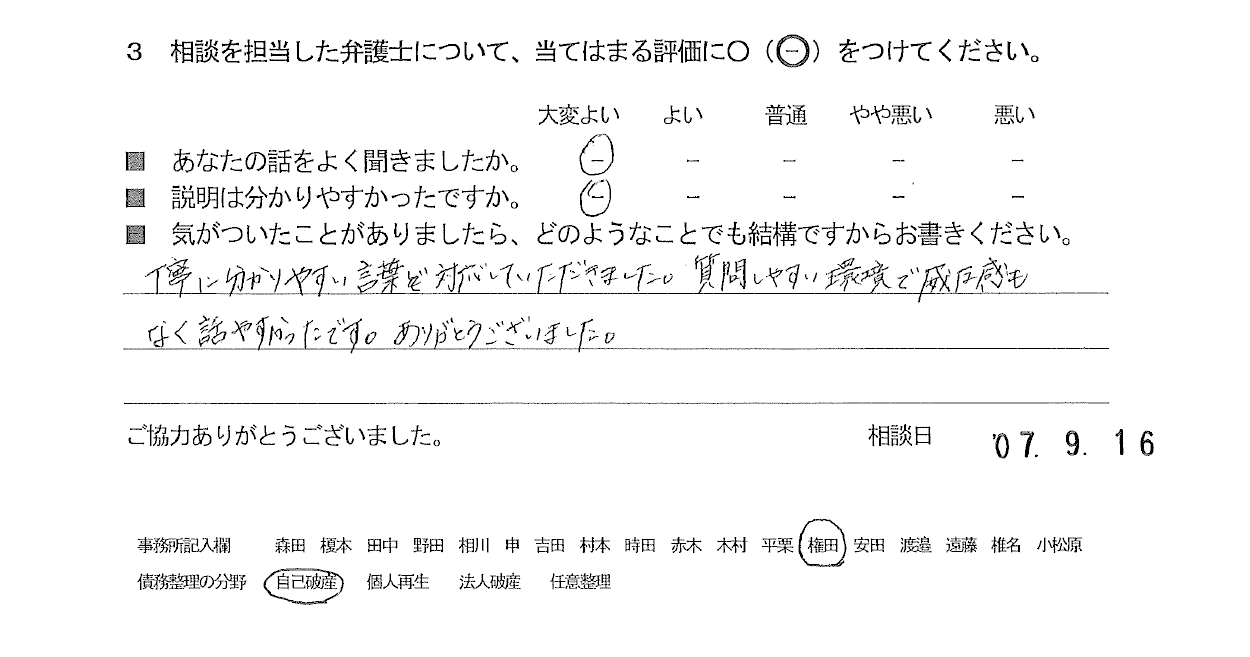 3 相談を担当した弁護士について、当てはまる評価に〇(㊀)をつけてください。
大変よい よい 普通 やや悪い 悪い
■ あなたの話をよく聞きましたか。 - - - - -
■ 説明は分かりやすかったですか。 - - - - -
■ 気がついたことがありましたら、どのようなことでも結構ですからお書きください。
丁寧に分かりやすい言葉で対応していただきました。質問しやすい環境で威圧感も
なく話やすかったです。ありがとうございました。
ご協力ありがとうございました。 相談日 '07. 9. 16
事務所記入欄 森田 榎本 田中 野田 相川 申 吉田 村本 時田 赤木 木村 平栗 権田 安田 渡邉 遠藤 椎名 小松原
債務整理の分野 自己破産 個人再生 法人破産 任意整理